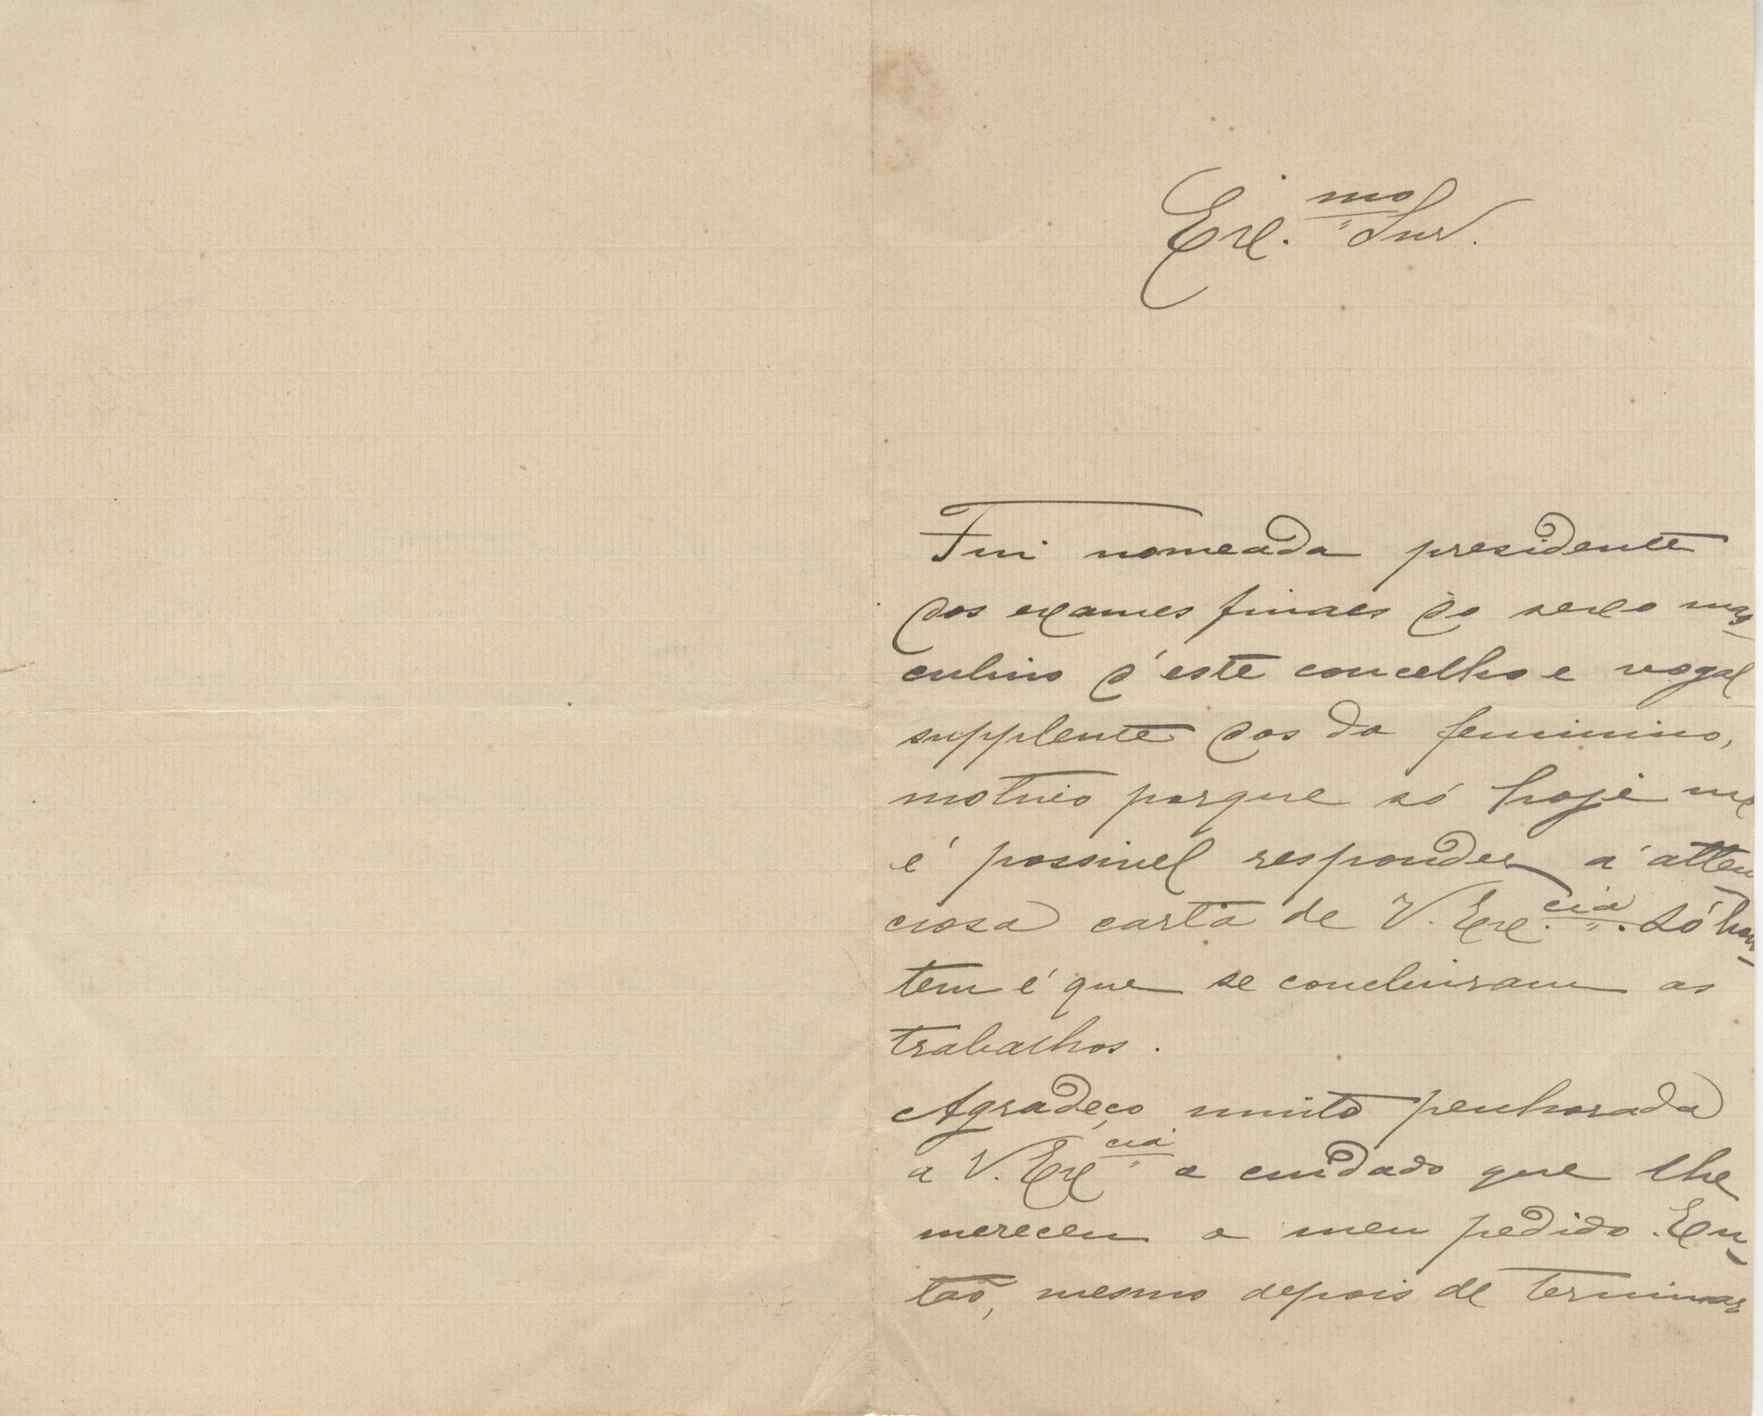 Ex.mo Snr.
Fui nomeada presidente
dos exames finaes do sexo mas-
culino d'este concelho e vogal
supplente dos do feminino,
motivo porque só hoje me
é possivel responder á atten
ciosa carta de V. Ex.cia. Só hon-
tem é que se concluiram os
trabalhos.
Agradeço muito penhorada
a V. Excia o cuidado que lhe
mereceu o meu pedido. En-
tão, mesmo depois de terminar